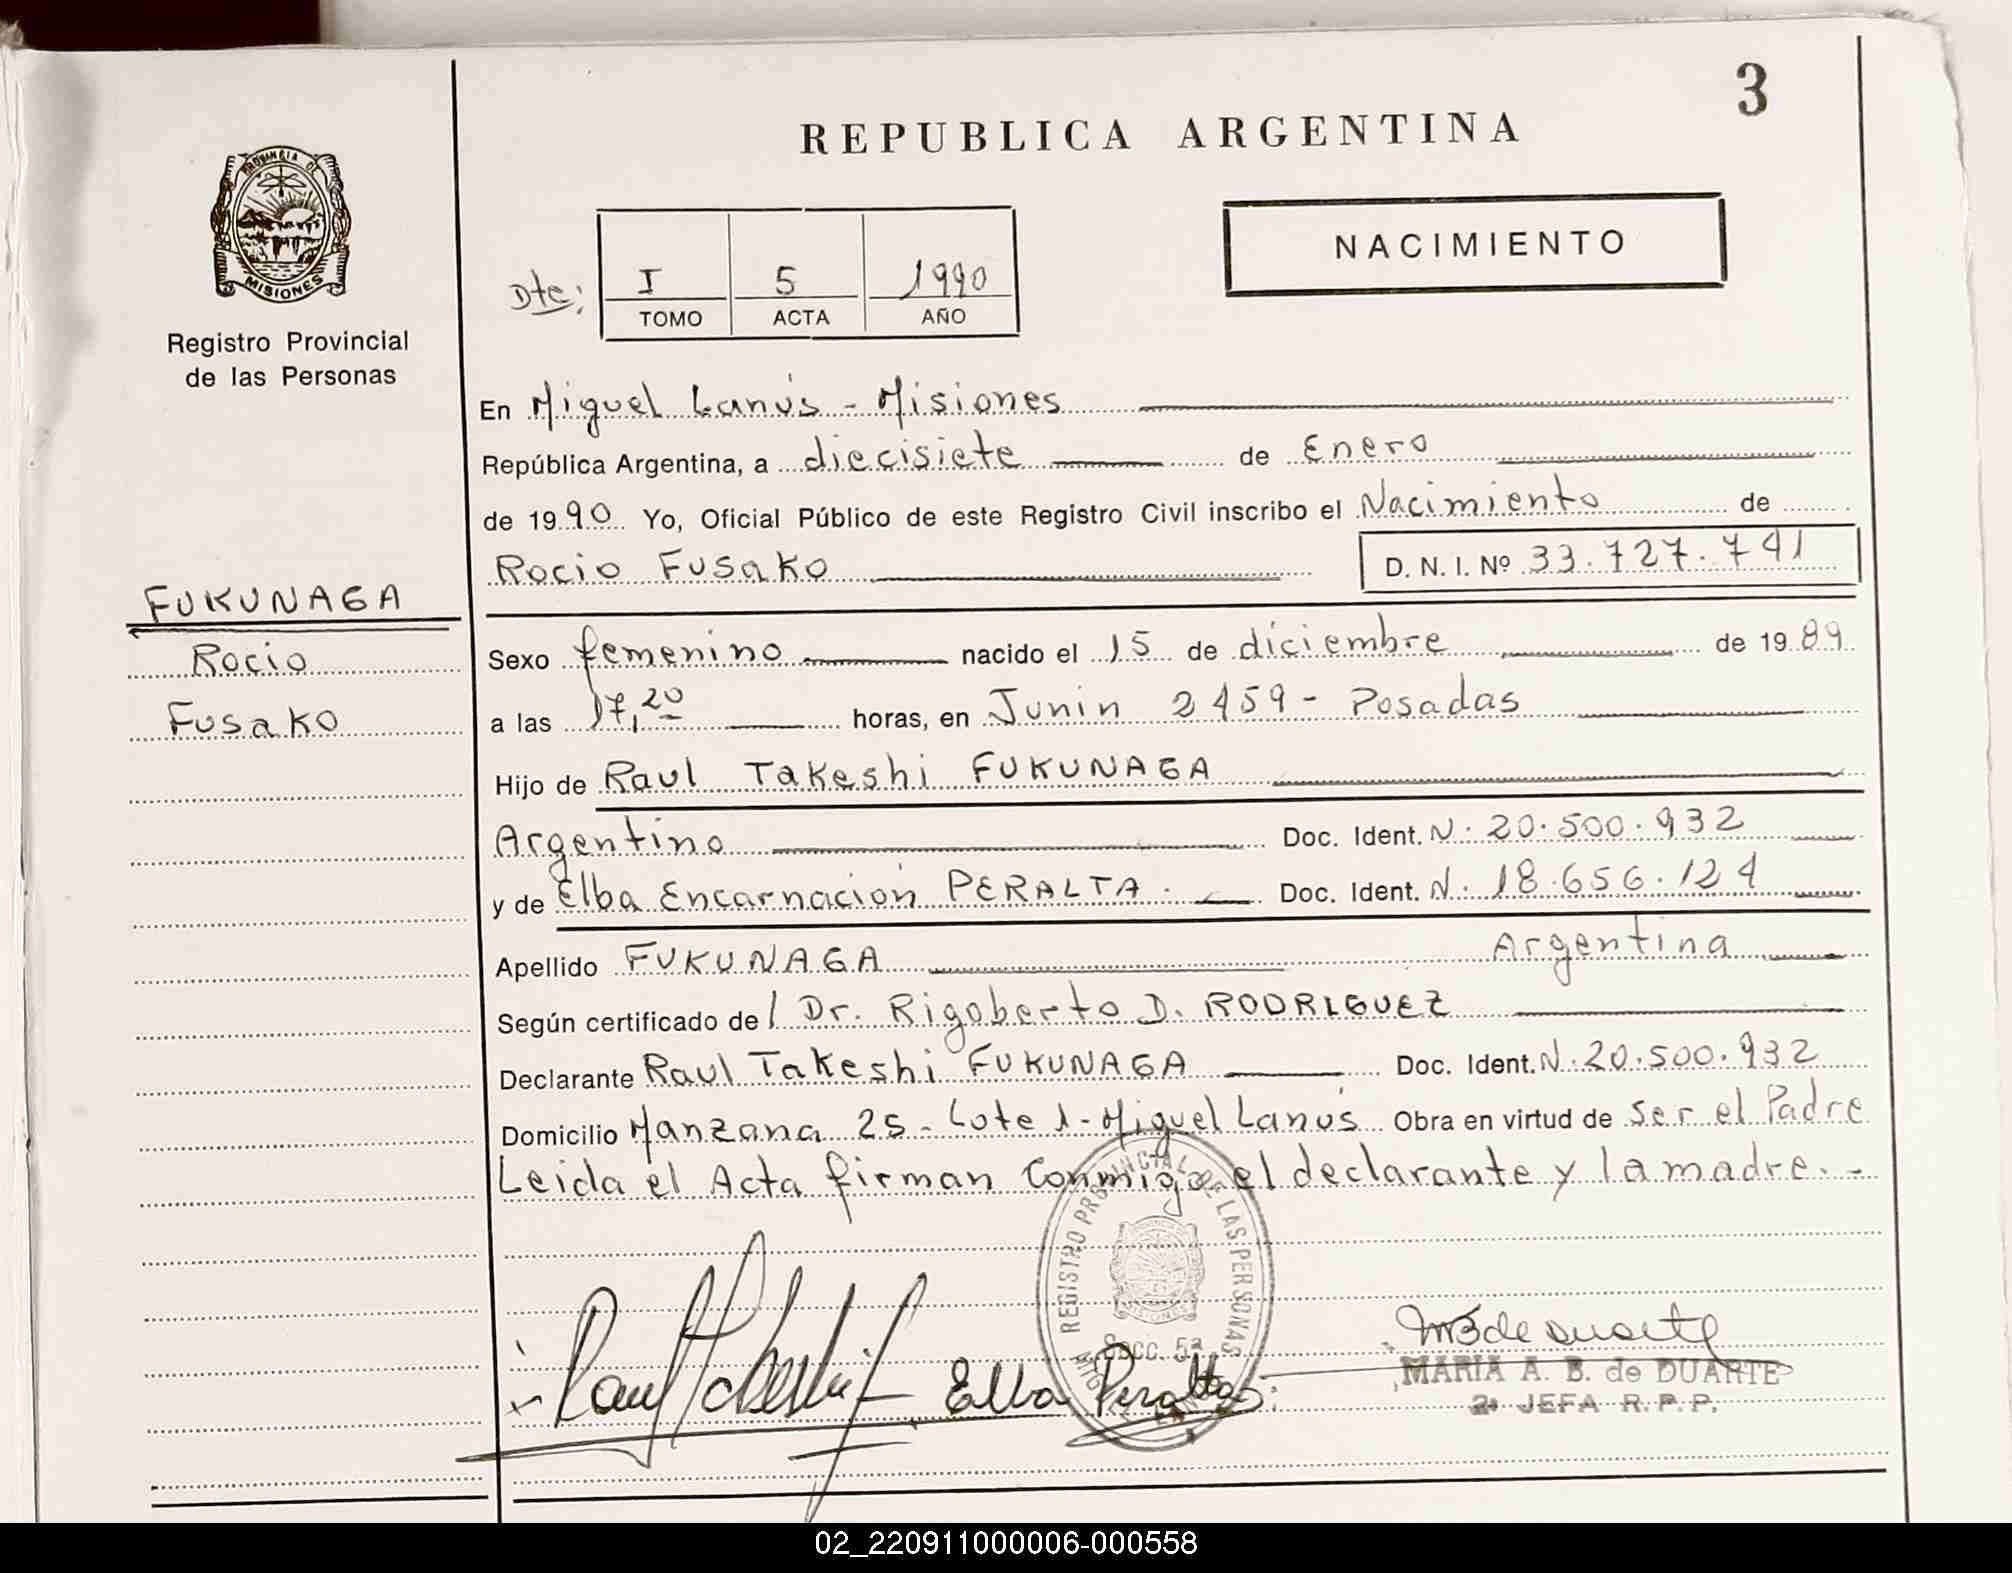 3
REPUBLICA ARGENTINA
PROVINCIA DE
MISIONES
Registro Provincial
de las Personas
NACIMIENTO
Dto: I 5 1990
TOMO ACTA AÑO
En Miguel Lanús - Misiones
República Argentina, a diecisiete de Enero
de 1990 Yo, Oficial Público de este Registro Civil inscribo el Nacimiento de
Rocio Fusako D. N. I. Nº 33.727.741
FUKUNAGA
Rocio
Fusako
Sexo femenino nacido el 15 de diciembre de 1989
a las 17,20 horas, en Junin 2459 - Posadas
Hijo de Raul Takeshi FUKUNAGA
Argentino Doc. Ident. N: 20.500.932
y de Elba Encarnación PERALTA. Doc. Ident. N. 18.656.124
Apellido FUKUNAGA Argentina
Según certificado del Dr. Rigoberto D. RODRIGUEZ
Declarante Raul Takeshi FUKUNAGA Doc. Ident. N. 20.500.932
Domicilio Manzana 25 - Lote 1 - Miguel Lanús Obra en virtud de ser el Padre
Leida el Acta firman Conmigo el declarante y la madre. -
REGISTRO PROVINCIAL DE LAS PERSONAS
MISIONES
SECC. 5ª
Raul Takeshi F
Elba Peralta
MB de Duarte
MARIA A. B. de DUARTE
2ª JEFA R. P. P.
02_220911000006-000558